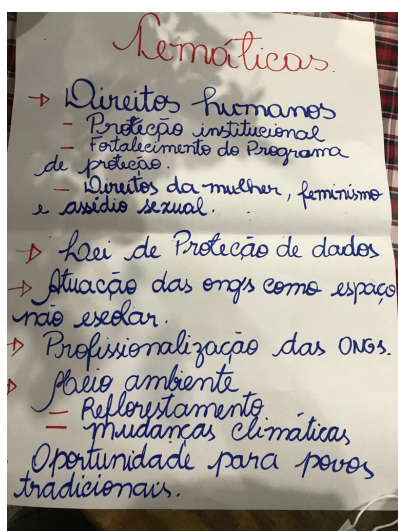 Temáticas.
→ Direitos humanos
- Proteção institucional
- Fortalecimento do Programa
de proteção.
- Direitos da mulher, feminismo
e assédio sexual.
→ Lei de Proteção de dados
→ Atuação das ong's como espaço
não escolar.
→ Profissionalização das ONGs.
→ Meio ambiente
- Reflorestamento
- mudanças climáticas
Oportunidade para povos
tradicionais.